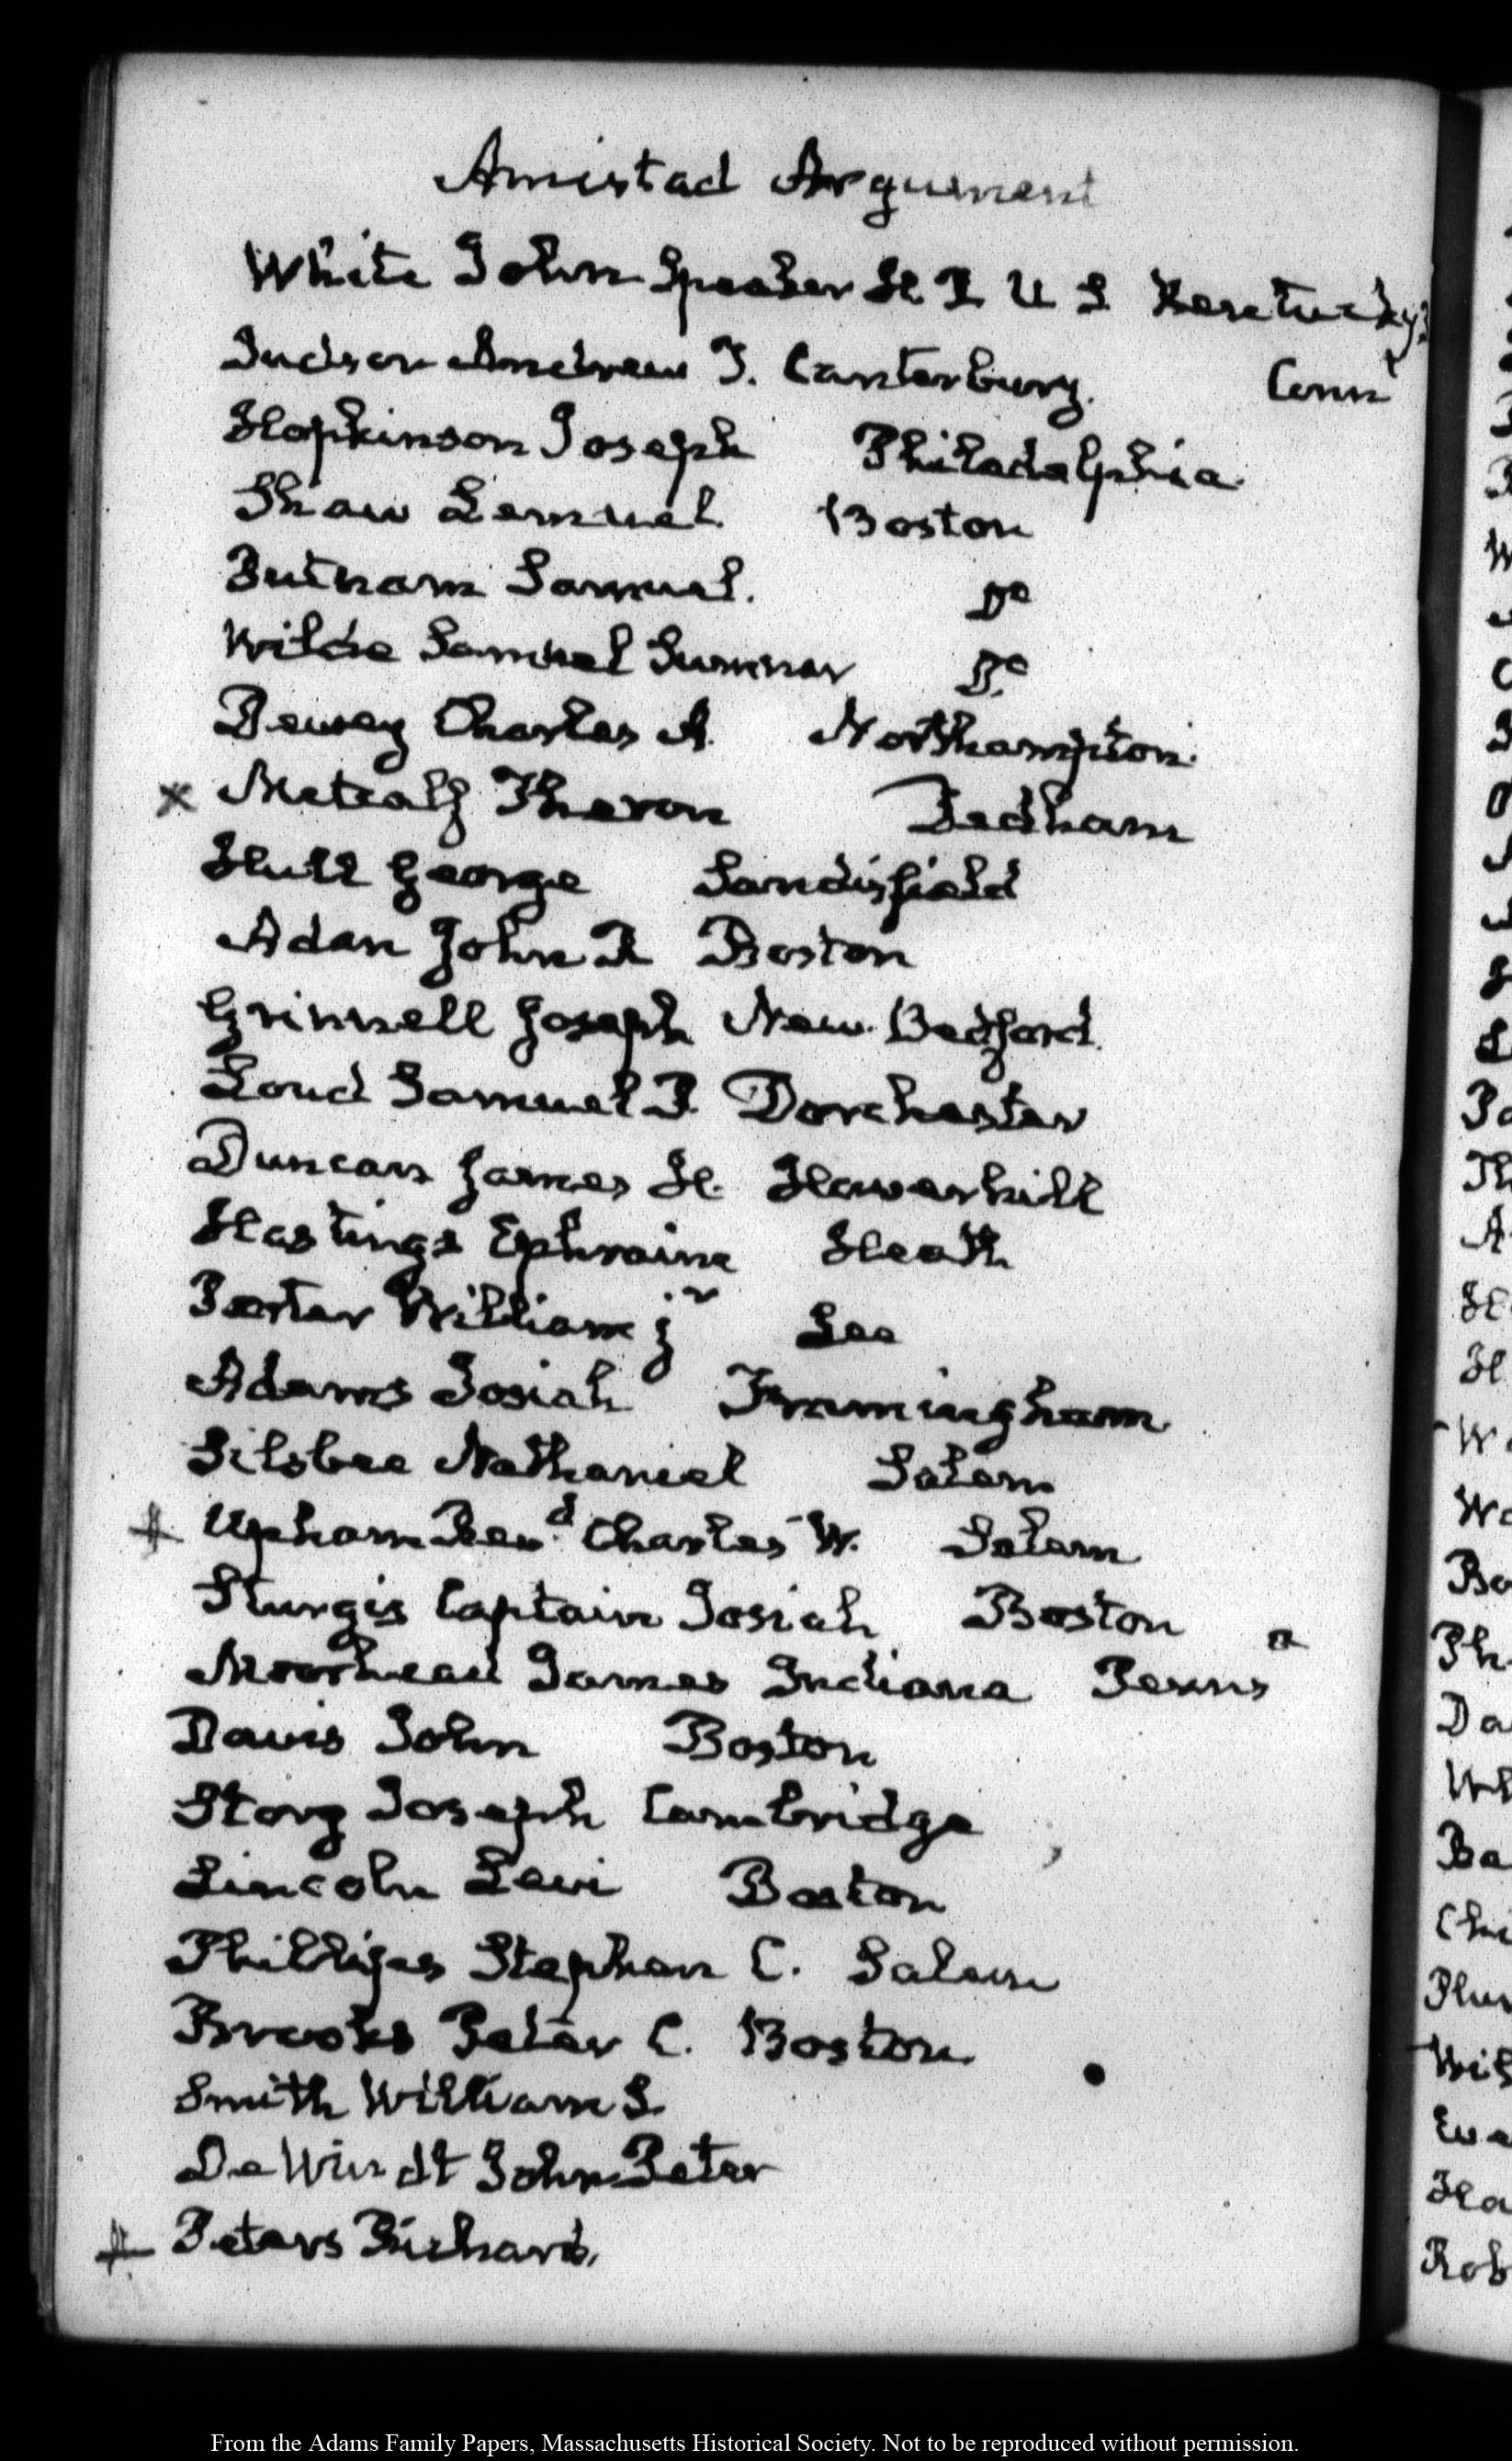 Amistad Argument
White John Speaker H R U S Kentucky
Judson Andrew T. Canterbury. Connt
Hopkinson Joseph Philadelphia
Shaw Lemuel Boston
Putnam Samuel. Do
Wilde Samuel Sumner Do
Dewey Charles A. Northampton.
x Metcalf Theron Dedham
Hull George Sandisfield
Adan John R Boston
Grinnell Joseph New Bedford.
Loud Samuel P. Dorchester
Duncan James H. Haverhill
Hastings Ephraim Heath
Porter William jr Lee
Adams Josiah Framingham
Silsbee Nathaniel Salem
+ Upham Revd. Charles W. Salem
Sturgis Captain Josiah Boston
Moorhead James Indiana Pennsa
Davis John Boston
Story Joseph Cambridge
Lincoln Levi Boston
Phillips Stephen C. Salem
Brooks Peter C. Boston
Smith William S.
De Windt John Peter
+ Peters Richard.
From the Adams Family Papers, Massachusetts Historical Society. Not to be reproduced without permission.